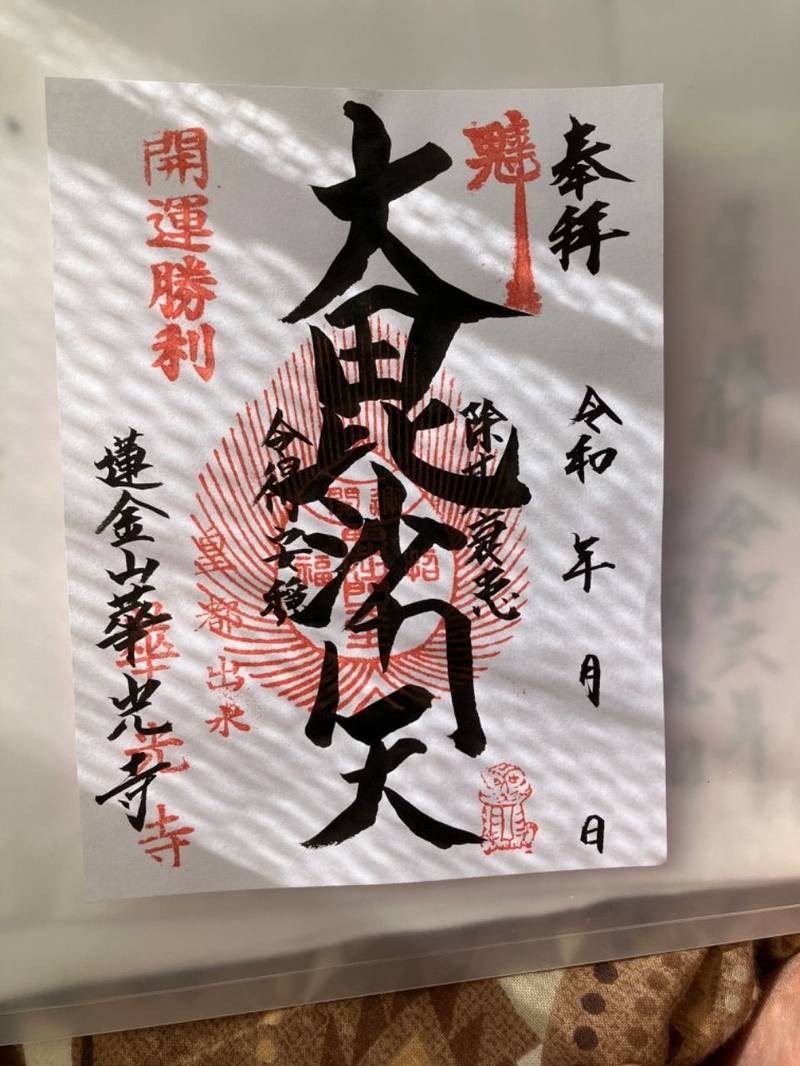 奉拝
令和 年 月 日
大毘沙門天
除其衰患
令得安穏
開運勝利
皇都出水
蓮金山華光寺
華光寺